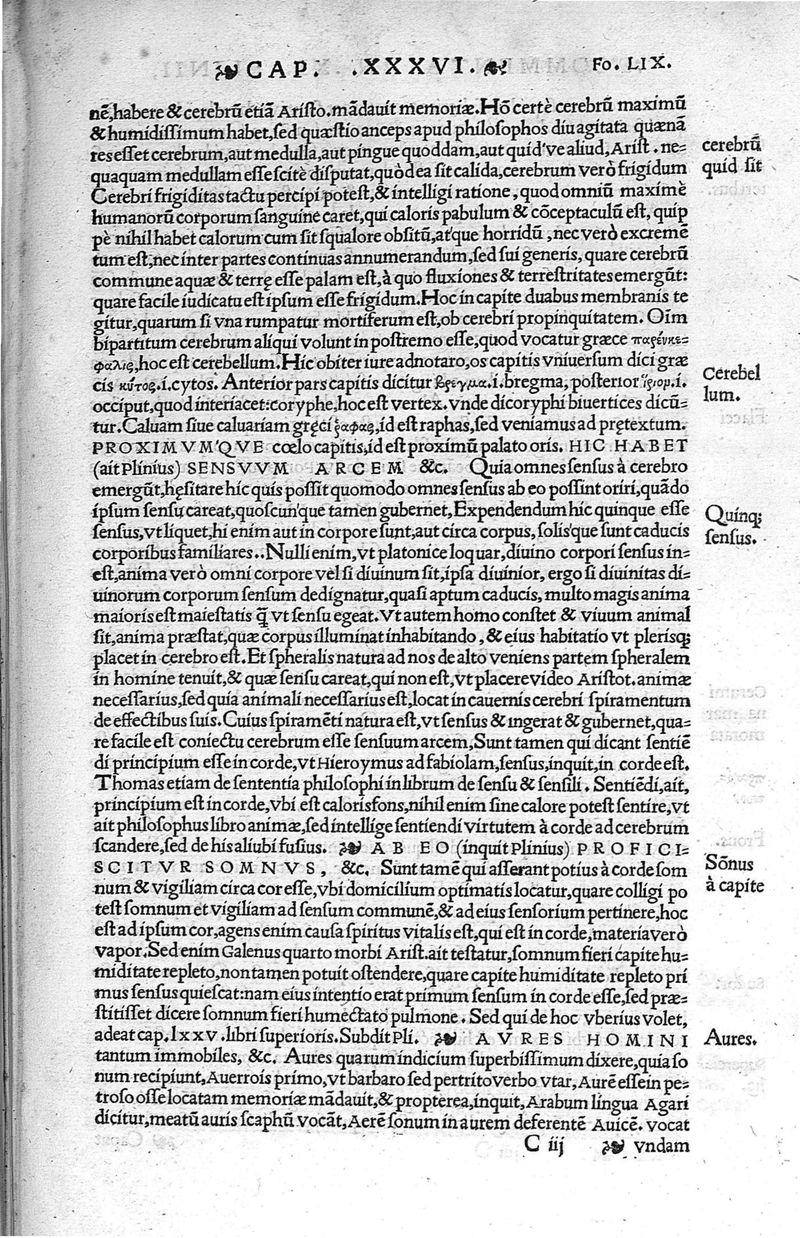 CAP. .XXXVI. Fo. LIX.
nē, habere & cerebrū etiā Aristo. mādauit memoriæ. Hō certè cerebrū maximū
& humidissimum habet, sed quæstio anceps apud philosophos diu agitata quænā
res esset cerebrum, aut medulla, aut pingue quoddam, aut quid've aliud, Arist. ne=
quaquam medullam esse scitè disputat, quòd ea sit calida, cerebrum verò frigidum
Cerebri frigiditas tactu percipi potest, & intelligi ratione, quod omniū maximè
humanorū corporum sanguine caret, qui caloris pabulum & cōceptaculū est, quip
pè nihil habet calorum cum sit squalore obsitū, at'que horridū, nec verò excremē
tum est, nec inter partes continuas annumerandum, sed sui generis, quare cerebrū
commune aquæ & terrę esse palam est, à quo fluxiones & terrestritates emergūt:
quare facile iudicatu est ipsum esse frigidum. Hoc in capite duabus membranis te
gitur, quarum si vna rumpatur mortiferum est, ob cerebri propinquitatem. Oīm
bipartitum cerebrum aliqui volunt in postremo esse, quod vocatur græce παρένκε-
φαλις, hoc est cerebellum. Hic obiter iure adnotaro, os capitis vniuersum dici græ
cis κύτος .i. cytos. Anterior pars capitis dicitur βρέγμα .i. bregma, posterior ἴνιομ .i.
occiput, quod interiacet: coryphe, hoc est vertex. vnde dicoryphi biuertices dicū=
tur. Caluam siue caluariam gręci ῥαφας, id est raphas, sed veniamus ad prętextum.
PROXIMVM'QVE cœlo capitis, id est proximū palato oris. HIC HABET
(ait Plinius) SENSVVM ARCEM &c. Quia omnes sensus à cerebro
emergūt, hęsitare hic quis possit quomodo omnes sensus ab eo possint oriri, quādo
ipsum sensu careat, quoscun'que tamen gubernet, Expendendum hic quinque esse
sensus, vt liquet, hi enim aut in corpore sunt, aut circa corpus, solis'que sunt caducis
corporibus familiares.. Nulli enim, vt platonice loquar, diuino corpori sensus in=
est, anima verò omni corpore vel si diuinum sit, ipsa diuinior, ergo si diuinitas di=
uinorum corporum sensum dedignatur, quasi aptum caducis, multo magis anima
maioris est maiestatis q̄ vt sensu egeat. Vt autem homo constet & viuum animal
sit, anima præstat, quæ corpus illuminat inhabitando, & eius habitatio vt plerisq;
placet in cerebro est. Et spheralis natura ad nos de alto veniens partem spheralem
in homine tenuit, & quæ sensu careat, qui non est, vt placere video Aristot. animæ
necessarius, sed quia animali necessarius est, locat in cauernis cerebri spiramentum
de effectibus suis. Cuius spiramēti natura est, vt sensus & ingerat & gubernet, qua=
re facile est coniectu cerebrum esse sensuum arcem, Sunt tamen qui dicant sentiē
di principium esse in corde, vt Hieroymus ad fabiolam, sensus, inquit, in corde est.
Thomas etiam de sententia philosophi in librum de sensu & sensili. Sentiēdi, ait,
principium est in corde, vbi est caloris fons, nihil enim sine calore potest sentire, vt
ait philosophus libro animæ, sed intellige sentiendi virtutem à corde ad cerebrum
scandere, sed de his aliubi fusius. AB EO (inquit Plinius) PROFICI=
SCITVR SOMNVS, &c. Sunt tamē qui asserant potius à corde som
num & vigiliam circa cor esse, vbi domicilium optimatis locatur, quare colligi po
test somnum et vigiliam ad sensum communē, & ad eius sensorium pertinere, hoc
est ad ipsum cor, agens enim causa spiritus vitalis est, qui est in corde, materia verò
vapor. Sed enim Galenus quarto morbi Arist. ait testatur, somnum fieri capite hu=
miditate repleto, non tamen potuit ostendere, quare capite humiditate repleto pri
mus sensus quiescat: nam eius intentio erat primum sensum in corde esse, sed præ=
stitisset dicere somnum fieri humectato pulmone. Sed qui de hoc vberius volet,
adeat cap. lxxv. libri superioris. Subdit Pli. AVRES HOMINI
tantum immobiles, &c. Aures quarum indicium superbissimum dixere, quia so
num recipiunt, Auerrois primo, vt barbaro sed pertrito verbo vtar, Aurē esse in pe=
troso osse locatam memoriæ mādauit, & propterea, inquit, Arabum lingua Agari
dicitur, meatū auris scaphū vocāt, Aerē sonum in aurem deferentē Auicē. vocat
C iij vndam
cerebrū
quid sit
Cerebel
lum.
Quinq;
sensus.
Sōnus
à capite
Aures.